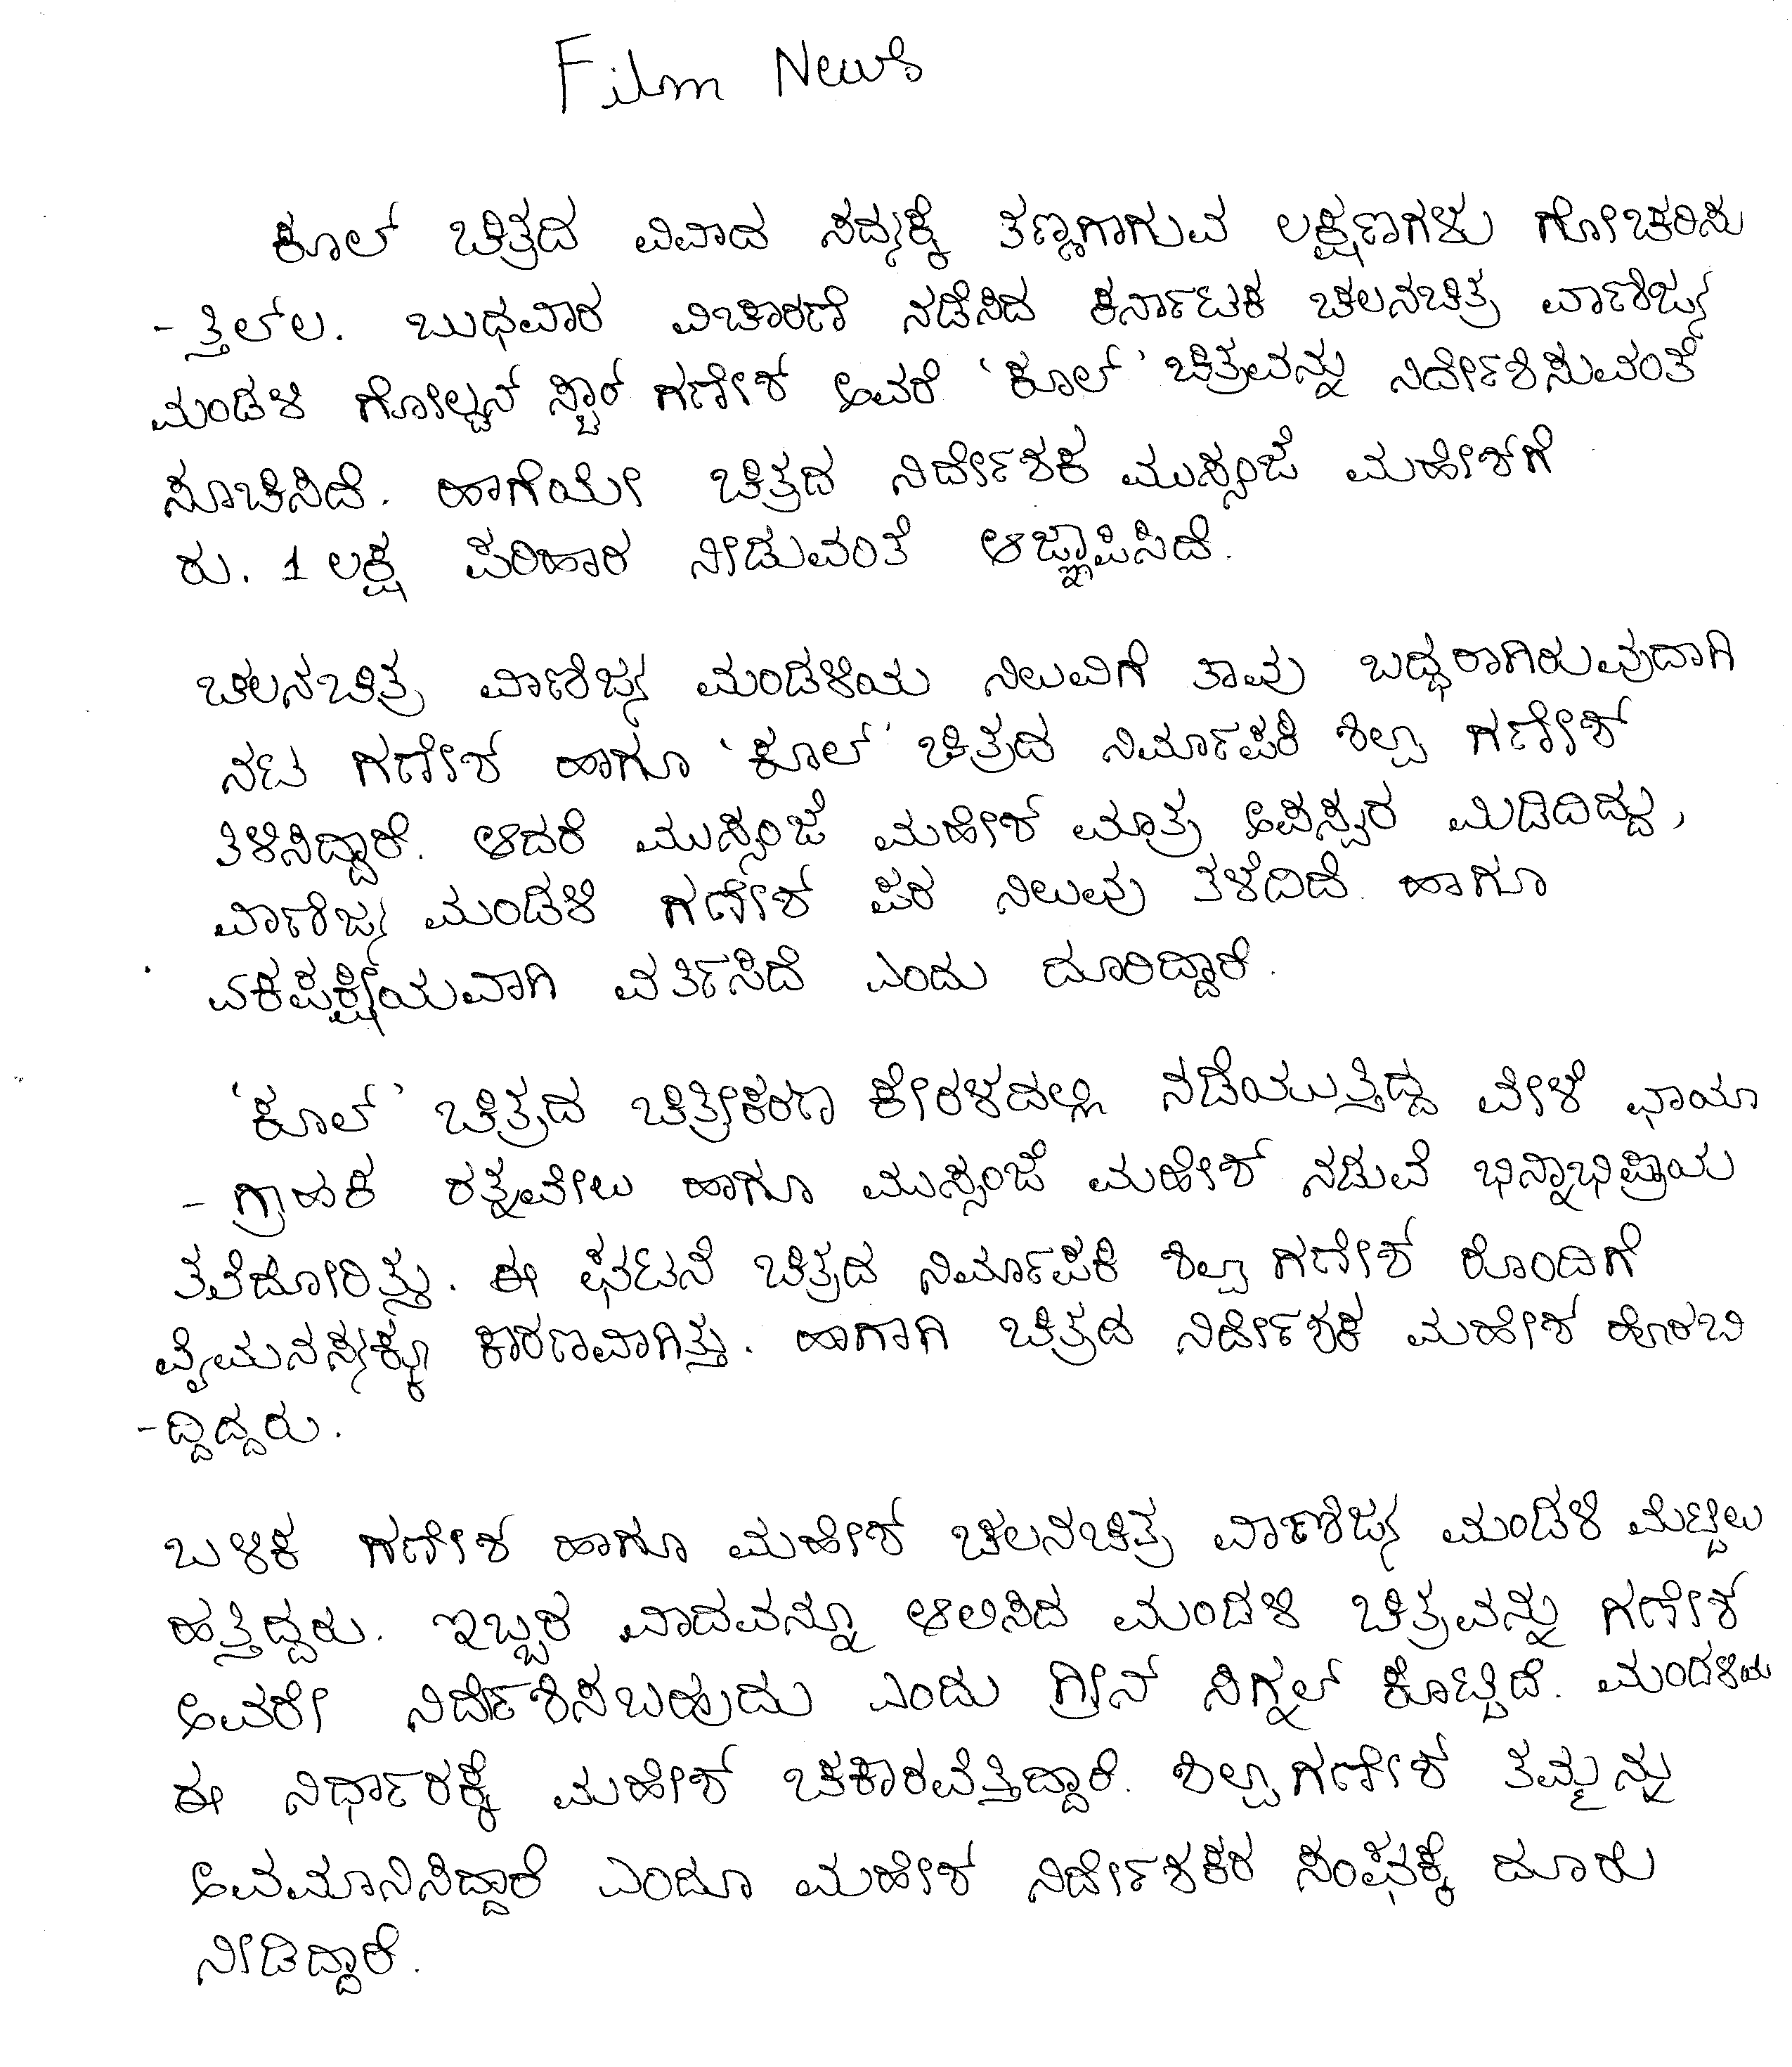 Film News
ಕೂಲ್ ಚಿತ್ರದ ವಿವಾದ ಸದ್ಯಕ್ಕೆ ತಣ್ಣಗಾಗುವ ಲಕ್ಷಣಗಳು ಗೋಚರಿಸು
- ತ್ತಿಲ್ಲ. ಬುಧವಾರ ವಿಚಾರಣೆ ನಡೆಸಿದ ಕರ್ನಾಟಕ ಚಲನಚಿತ್ರ ವಾಣಿಜ್ಯ
ಮಂಡಳಿ ಗೋಲ್ಡನ್ ಸ್ಟಾರ್ ಗಣೇಶ್ ಅವರೆ 'ಕೂಲ್' ಚಿತ್ರವನ್ನು ನಿರ್ದೇಶಿಸುವಂತೆ
ಸೂಚಿಸಿದೆ. ಹಾಗೆಯೇ ಚಿತ್ರದ ನಿರ್ದೇಶಕ ಮುಸ್ಸಂಜೆ ಮಹೇಶ್‌ಗೆ
ರು. 1 ಲಕ್ಷ ಪರಿಹಾರ ನೀಡುವಂತೆ ಆಜ್ಞಾಪಿಸಿದೆ.
ಚಲನಚಿತ್ರ ವಾಣಿಜ್ಯ ಮಂಡಳಿಯ ನಿಲುವಿಗೆ ತಾವು ಬದ್ಧರಾಗಿರುವುದಾಗಿ
ನಟ ಗಣೇಶ್ ಹಾಗೂ 'ಕೂಲ್' ಚಿತ್ರದ ನಿರ್ಮಾಪಕಿ ಶಿಲ್ಪಾ ಗಣೇಶ್
ತಿಳಿಸಿದ್ದಾರೆ. ಆದರೆ ಮುಸ್ಸಂಜೆ ಮಹೇಶ್ ಮಾತ್ರ ಅಪಸ್ವರ ಮಿಡಿದಿದ್ದು,
ವಾಣಿಜ್ಯ ಮಂಡಳಿ ಗಣೇಶ್ ಪರ ನಿಲುವು ತಳೆದಿದೆ. ಹಾಗೂ
ಏಕಪಕ್ಷೀಯವಾಗಿ ವರ್ತಿಸಿದೆ ಎಂದು ದೂರಿದ್ದಾರೆ.
'ಕೂಲ್' ಚಿತ್ರದ ಚಿತ್ರೀಕರಣ ಕೇರಳದಲ್ಲಿ ನಡೆಯುತ್ತಿದ್ದ ವೇಳೆ ಛಾಯಾ
- ಗ್ರಾಹಕ ರತ್ನವೇಲು ಹಾಗೂ ಮುಸ್ಸಂಜೆ ಮಹೇಶ್ ನಡುವೆ ಭಿನ್ನಾಭಿಪ್ರಾಯ
ತಲೆದೋರಿತ್ತು. ಈ ಘಟನೆ ಚಿತ್ರದ ನಿರ್ಮಾಪಕಿ ಶಿಲ್ಪಾ ಗಣೇಶ್ ರೊಂದಿಗೆ
ವೈಮನಸ್ಯಕ್ಕೂ ಕಾರಣವಾಗಿತ್ತು. ಹಾಗಾಗಿ ಚಿತ್ರದ ನಿರ್ದೇಶಕ ಮಹೇಶ್ ಹೊರಬಿ
- ದ್ದಿದ್ದರು.
ಬಳಿಕ ಗಣೇಶ್ ಹಾಗೂ ಮಹೇಶ್ ಚಲನಚಿತ್ರ ವಾಣಿಜ್ಯ ಮಂಡಳಿ ಮೆಟ್ಟಿಲು
ಹತ್ತಿದ್ದರು. ಇಬ್ಬರ ವಾದವನ್ನೂ ಆಲಿಸಿದ ಮಂಡಳಿ ಚಿತ್ರವನ್ನು ಗಣೇಶ್
ಅವರೇ ನಿರ್ದೇಶಿಸಬಹುದು ಎಂದು ಗ್ರೀನ್ ಸಿಗ್ನಲ್ ಕೊಟ್ಟಿದೆ. ಮಂಡಳಿಯ
ಈ ನಿರ್ಧಾರಕ್ಕೆ ಮಹೇಶ್ ಚಕಾರವೆತ್ತಿದ್ದಾರೆ. ಶಿಲ್ಪಾ ಗಣೇಶ್ ತಮ್ಮನ್ನು
ಅವಮಾನಿಸಿದ್ದಾರೆ ಎಂದೂ ಮಹೇಶ್ ನಿರ್ದೇಶಕರ ಸಂಘಕ್ಕೆ ದೂರು
ನೀಡಿದ್ದಾರೆ.